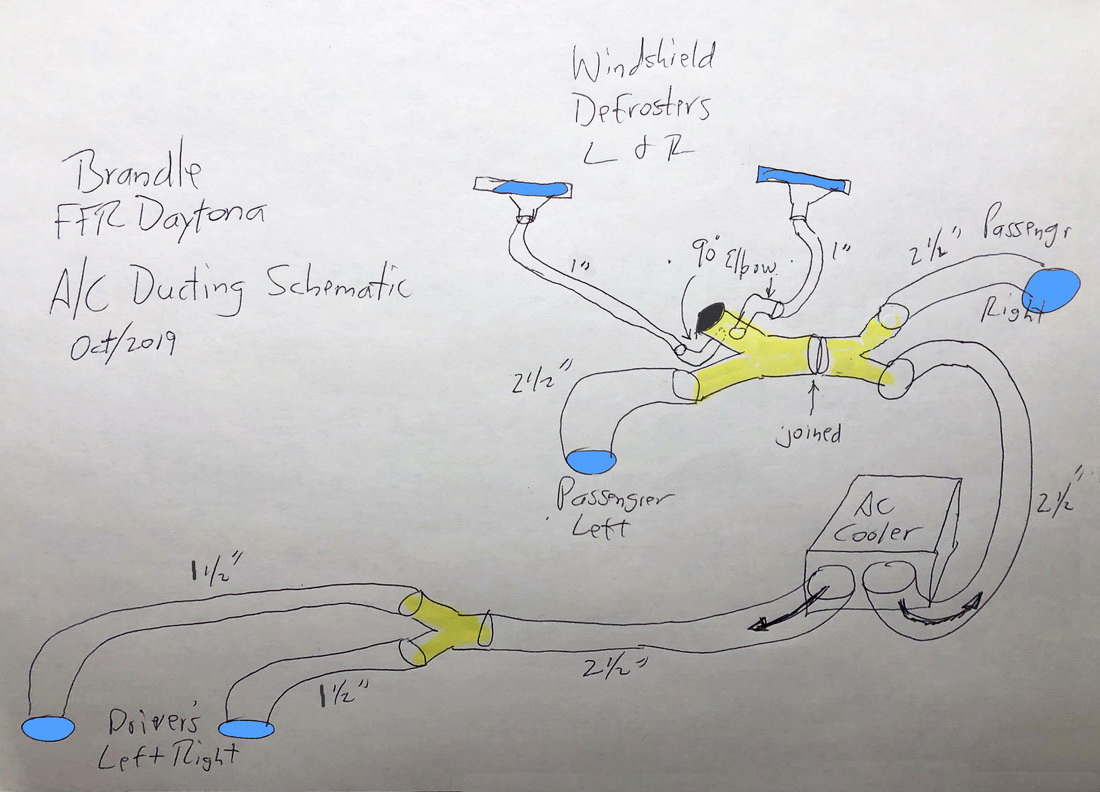 Windshield
Defrosters
L & R
Brandle
FFR Daytona
A/C Ducting Schematic
Oct/2019
1"
90° Elbow
1"
2 1/2"
Passengr
Right
2 1/2"
joined
Passenger
Left
AC
Cooler
2 1/2"
1 1/2"
2 1/2"
1 1/2"
Driver's
Left + Right